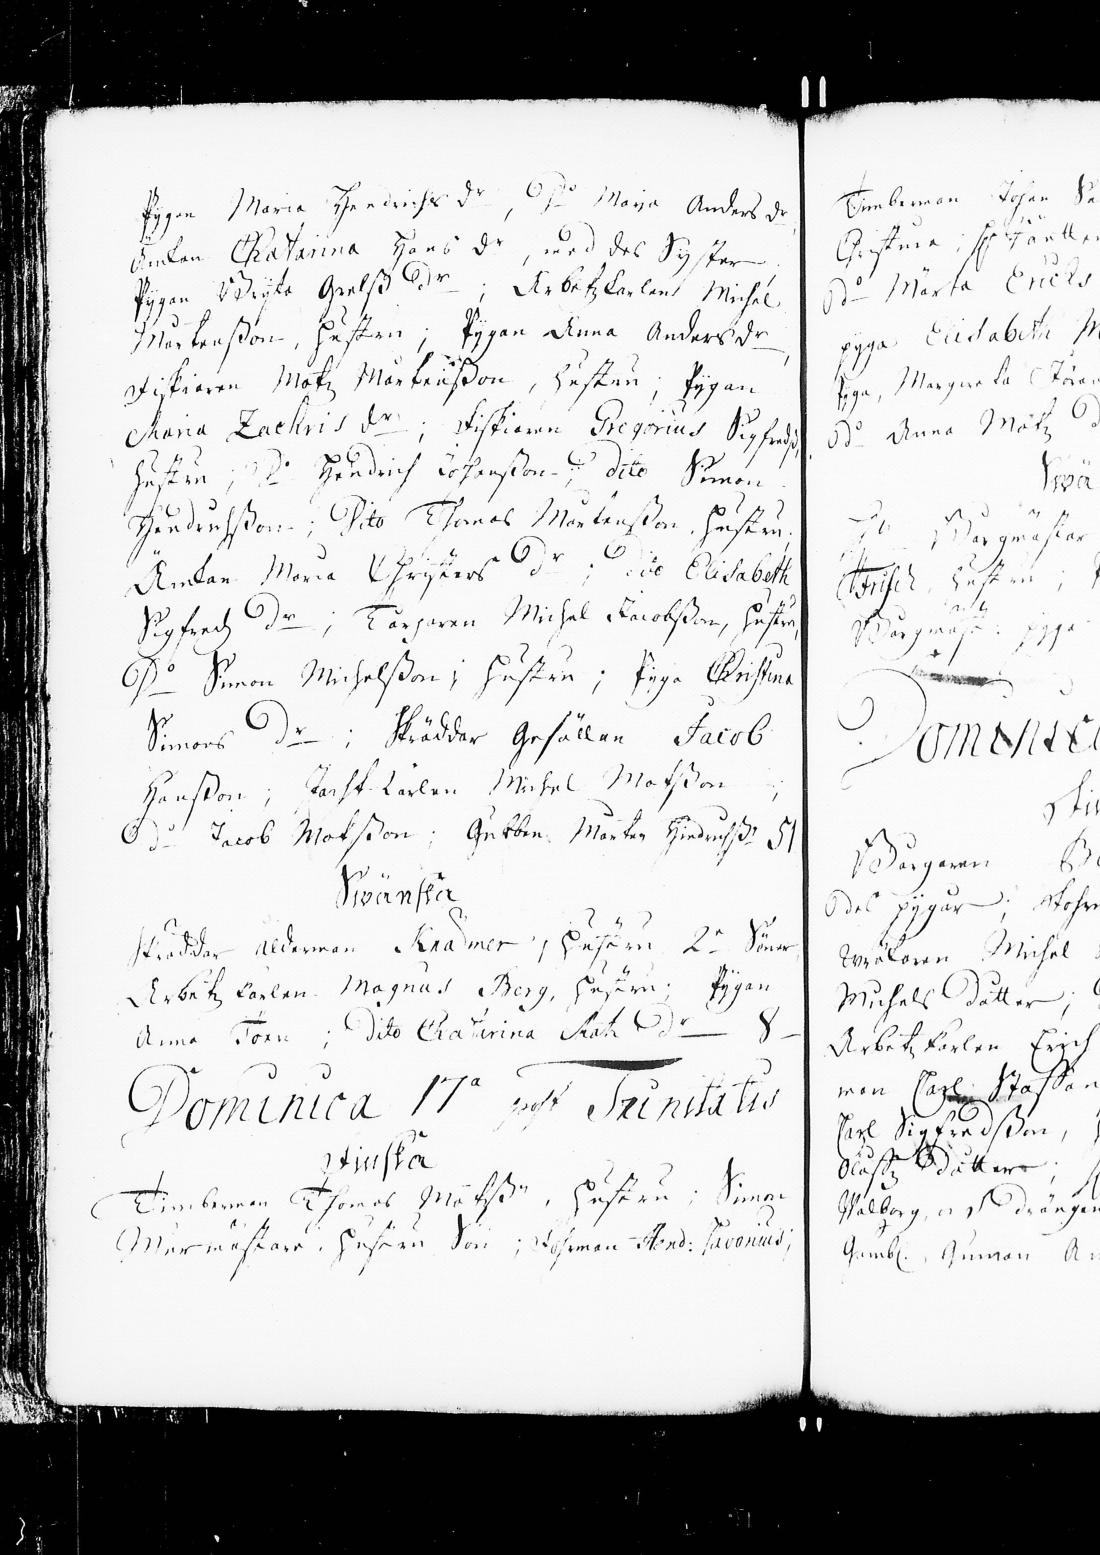 Pygan Maria Hendrichs dr, Do Maja Anders dr,
Änkan Chatarina Hans dr, med des Syster,
Pygan Brita Grels dr; Arbetzkarlen Michel
Mårtensson, hustru; Pygan Anna Anders dr,
Fiskiaren Matz Mårtensson, hustru; Pygan
Maria Zachris dr; Fiskiaren Gregorius Sigfreds,
hustru; Do Hendrich Johansson; dito Simon
Hendrichsson; Dito Thomas Mårtensson, hustru;
Änkan Maria Christers dr; dito Elisabeth
Sigfredz dr; Torparen Michel Jacobsson, hustru,
Do Simon Michelsson; hustru; Pyga Christina
Simons dr; Skräddar Gesällen Jacob
Hansson; Jacht karlen Michel Matsson;
Do Jacob Matsson; Gubben Mårten Hindrichss: 51
Swänska
Skräddar Ålderman Knadmer, hustru 2 Söner,
Arbetz karlen Magnus Berg, hustru; Pygan
Anna Toen; dito Chatarina Matz dr 8
Dominica 17a post Trinitatis
Finska
Timberman Thomas Matsson, hustru; Simon
Murmästare, hustru Son; Fohrman Hend: Pavonius;
Timberman Johan
Christina; Fautten
Do Märta Erichs
pyga Elisabeth M
Pyga, Margreta Jöran
Do Anna Matz d
Swä
Hr Borgmästar
Frisch, hustru;
Borgmäst: pyga
Dominica
Fin
Borgaren
des pygur; Fohrm
Wräkaren Michel
Michels dotter;
Arbetz karlen Erich
man Carl Staffan
Carl Sigfredsson,
Olofz dotter;
Walborg, drängen
Gambl. Gumman An